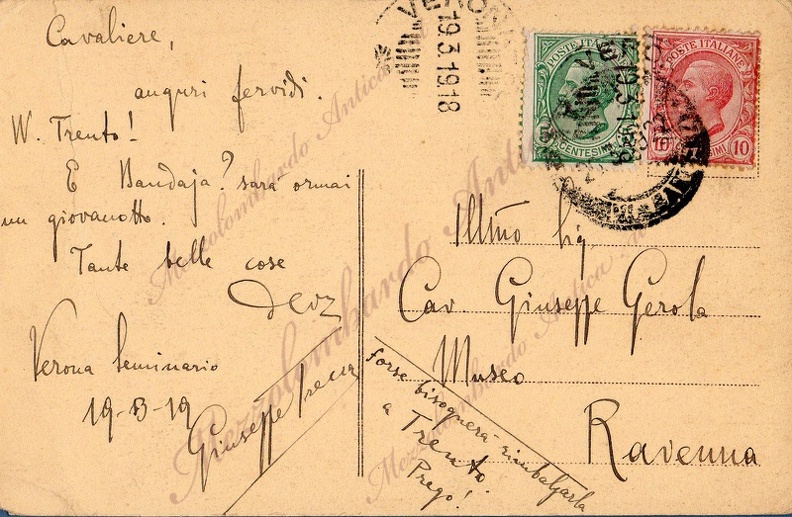 Cavaliere,
auguri fervidi.
W. Trento!
E Bandaja? sarà ormai
un giovanotto.
Tante belle cose
Verona Seminario
19-3-19
Giuseppe
VERONA
19.3.1918
POSTE ITALIANE
CENTESIMI
POSTE ITALIANE
10 CENTESIMI 10
Illmo Sig.
Cav. Giuseppe Gerola
Museo
Ravenna
forse bisognerà rimbalzarla
a Trento.
Prego!
Mezzolombardo Antica
Mezzolombardo Antica
Mezzolombardo Antica